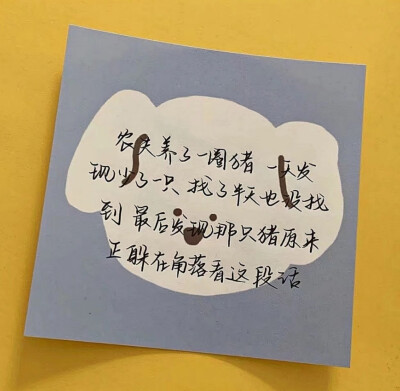 农夫养了一圈猪 一天发
现少了一只 找了半天也没找
到 最后发现那只猪原来
正躲在角落看这段话